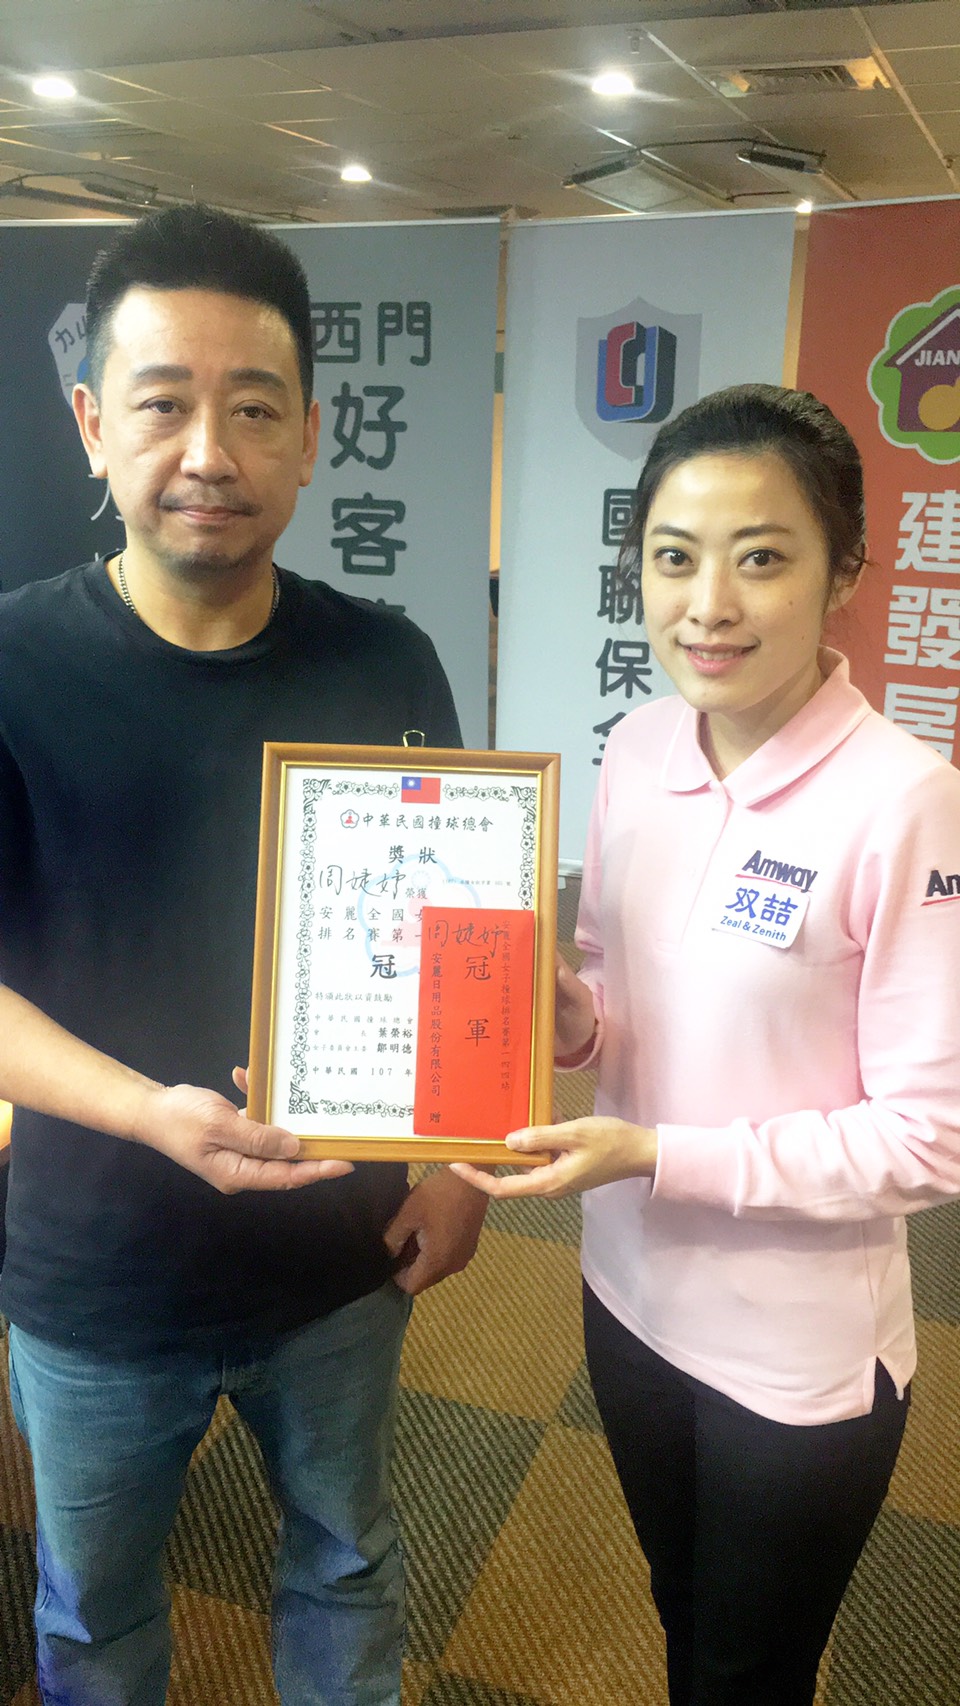 西門
好
客
國
聯
保
全
JIAN
建
發
居
中華民國撞球總會
獎狀
周婕妤 榮獲
安麗全國女
排名賽第一
冠
特頒此狀以資鼓勵
中華民國撞球總會
會長 葉榮裕
女子委員會主委 鄒明德
中華民國 107 年
安麗全國女子撞球排名賽第一
周婕妤
冠
軍
安麗日用品股份有限公司 贈
Amway
双喆
Zeal & Zenith
Am